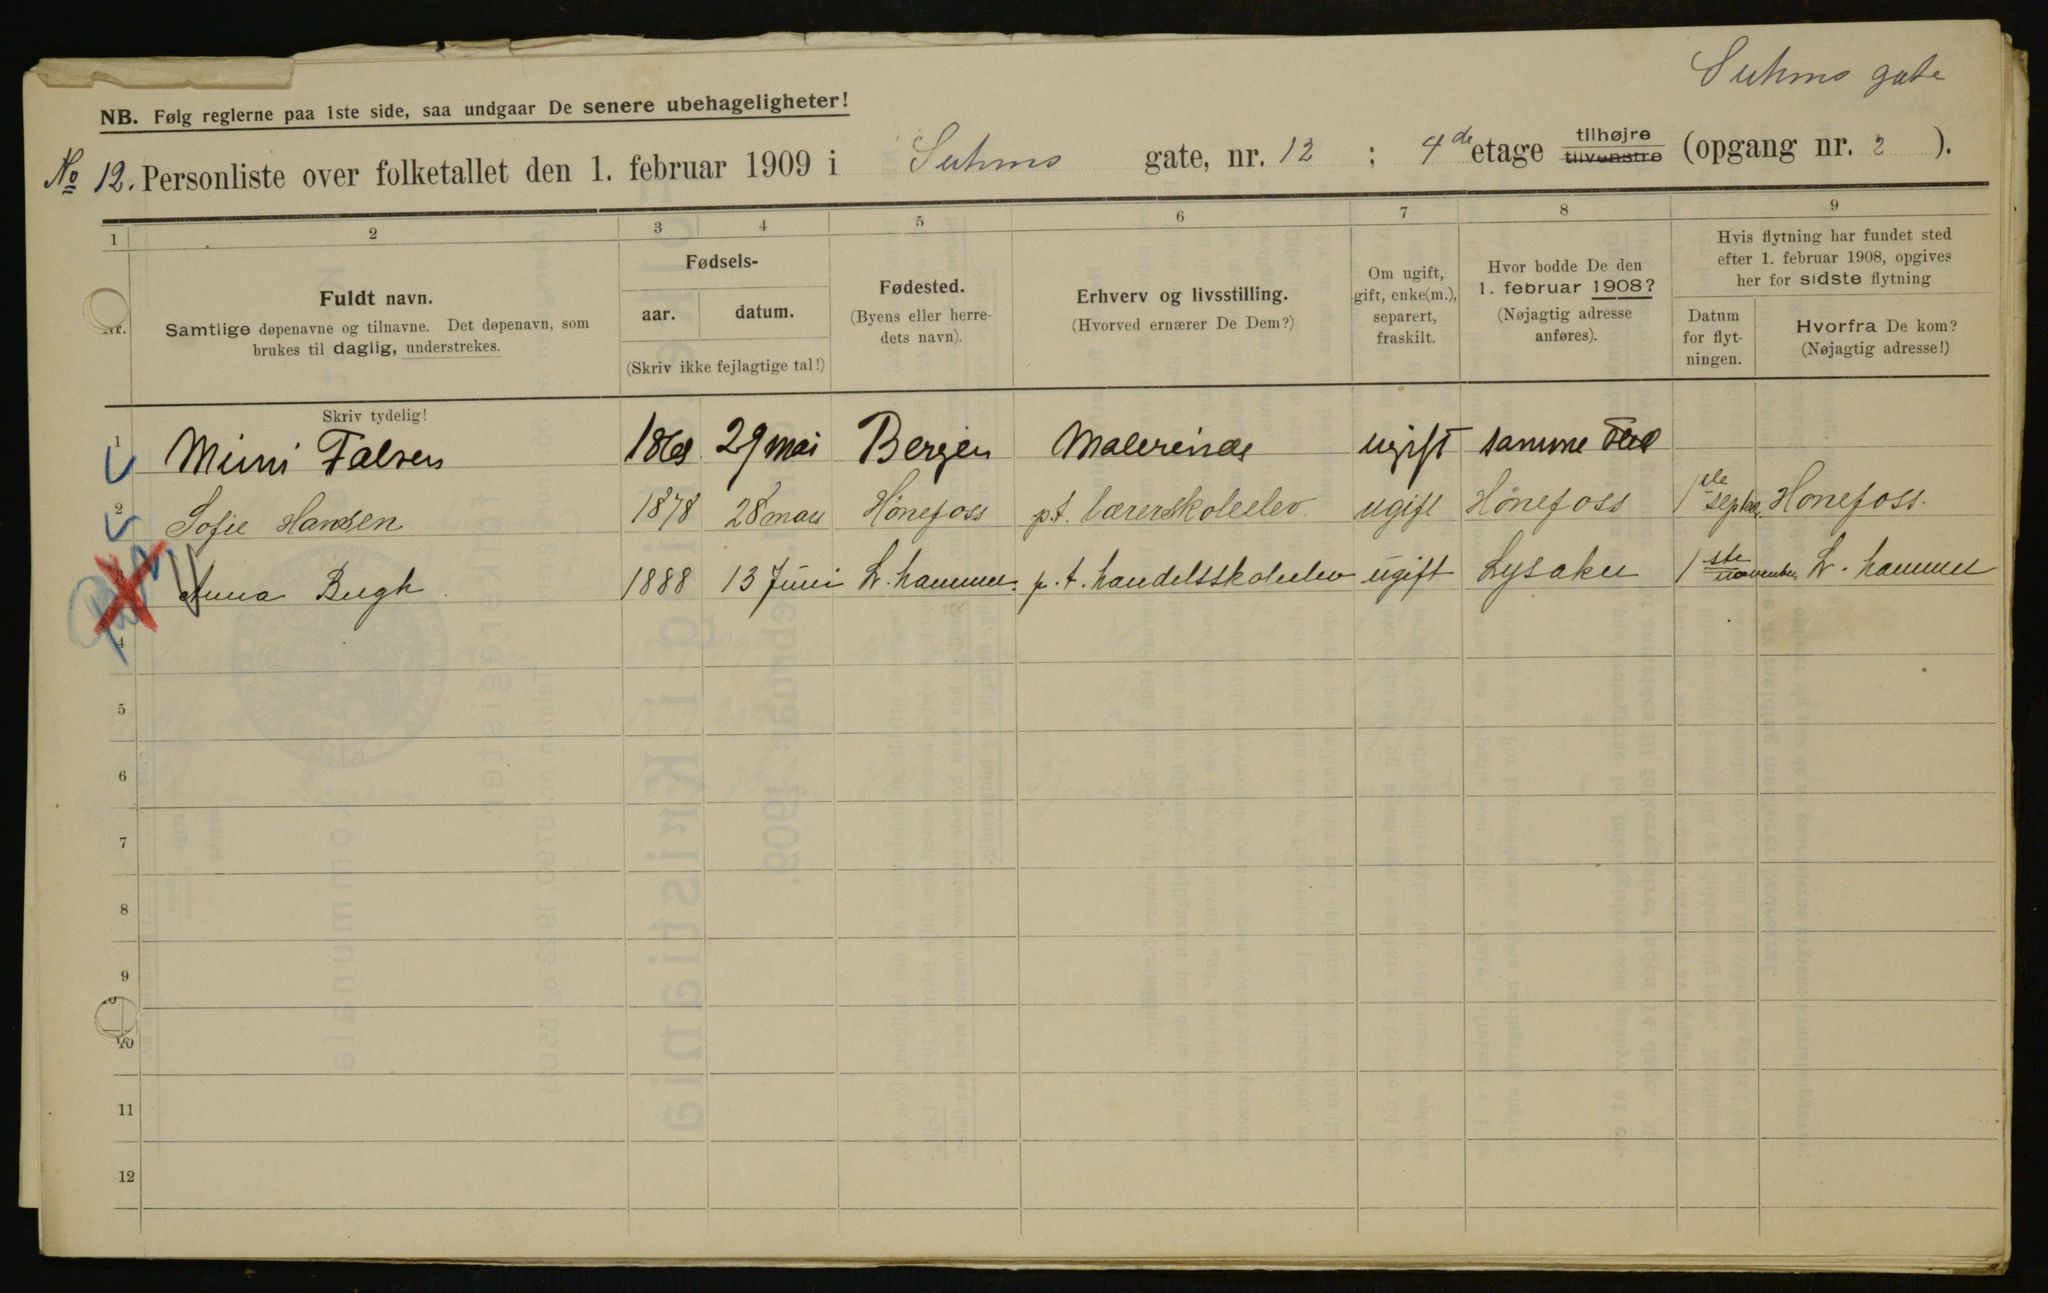 Suhms gate
NB. Følg reglerne paa 1ste side, saa undgaar De senere ubehageligheter!
No 12. Personliste over folketallet den 1. februar 1909 i Suhms gate, nr. 12 ; 4de etage tilhøjre tilvenstre (opgang nr. 2 ).
1 2 3 4 5 6 7 8 9
Nr.
Fuldt navn.
Samtlige døpenavne og tilnavne. Det døpenavn, som
brukes til daglig, understrekes.
Fødsels-
aar. datum.
(Skriv ikke fejlagtige tal!)
Fødested.
(Byens eller herre-
dets navn).
Erhverv og livsstilling.
(Hvorved ernærer De Dem?)
Om ugift,
gift, enke(m.),
separert,
fraskilt.
Hvor bodde De den
1. februar 1908?
(Nøjagtig adresse
anføres).
Hvis flytning har fundet sted
efter 1. februar 1908, opgives
her for sidste flytning
Datum
for flyt-
ningen.
Hvorfra De kom?
(Nøjagtig adresse!)
Skriv tydelig!
1 Mimi Falsen 29 mai Bergen Malerinde ugift samme sted
2 Sofie Hansen 1878 28 mars Hönefoss p.t. lærerskoleelev ugift Hönefoss 1ste septbr. Honefoss.
3 Anna Bugh 1888 13 Juni L. hammer. p. t. handelsskoleelev ugift Lysaker 1ste november L. hammer
4
5
6
7
8
9
10
11
12